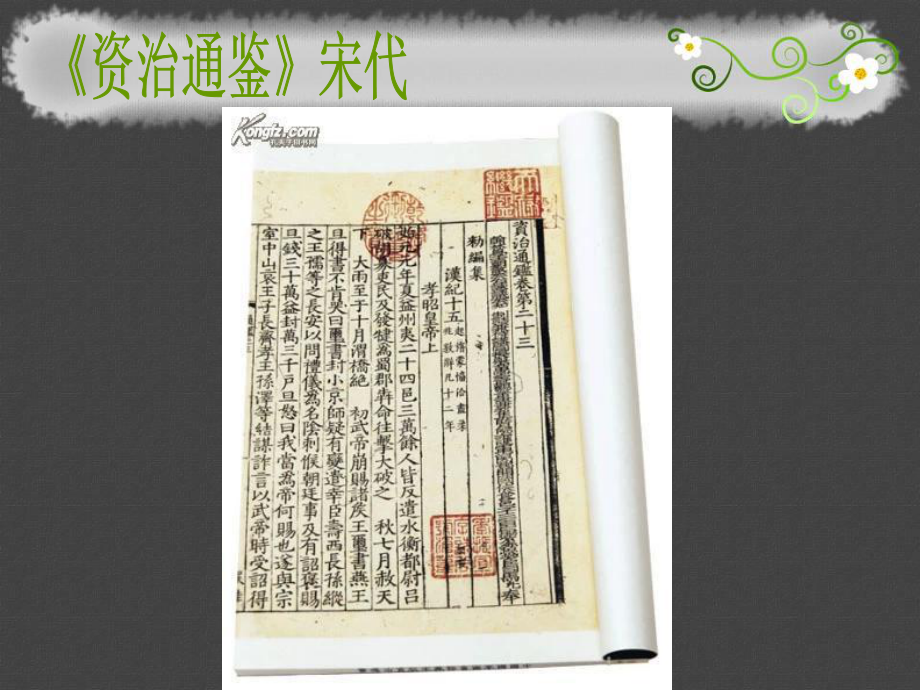 《资治通鉴》宋代
Kongfz.com
孔夫子旧书网
資治通鑑卷第二十三
奉
勑編集
漢紀十五 起旃蒙協洽盡柔
兆敦牂凡十二年
孝昭皇帝上
始元元年夏益州夷二十四邑三萬餘人皆反遣水衡都尉呂
破胡募吏民及發犍爲蜀郡犇命往擊大破之 秋七月赦天
下 大雨至于十月渭橋絶 初武帝崩賜諸侯王璽書燕王
旦得書不肯哭曰璽書封小京師疑有變遣幸臣壽西長孫縱
之王孺等之長安以問禮儀爲名陰刺候朝廷事及有詔襃賜
旦錢三十萬益封萬三千戶旦怒曰我當爲帝何賜也遂與宗
室中山哀王子長齊孝王孫澤等結謀詐言以武帝時受詔得